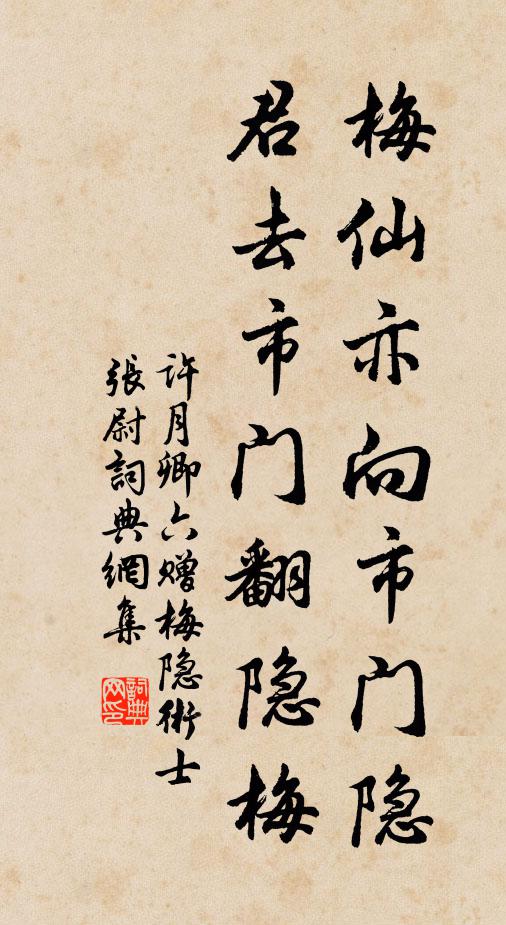 梅仙亦向市门隐
君去市门翻隐梅
许月卿六赠梅隐術士
張尉詞典網集
詞典网印